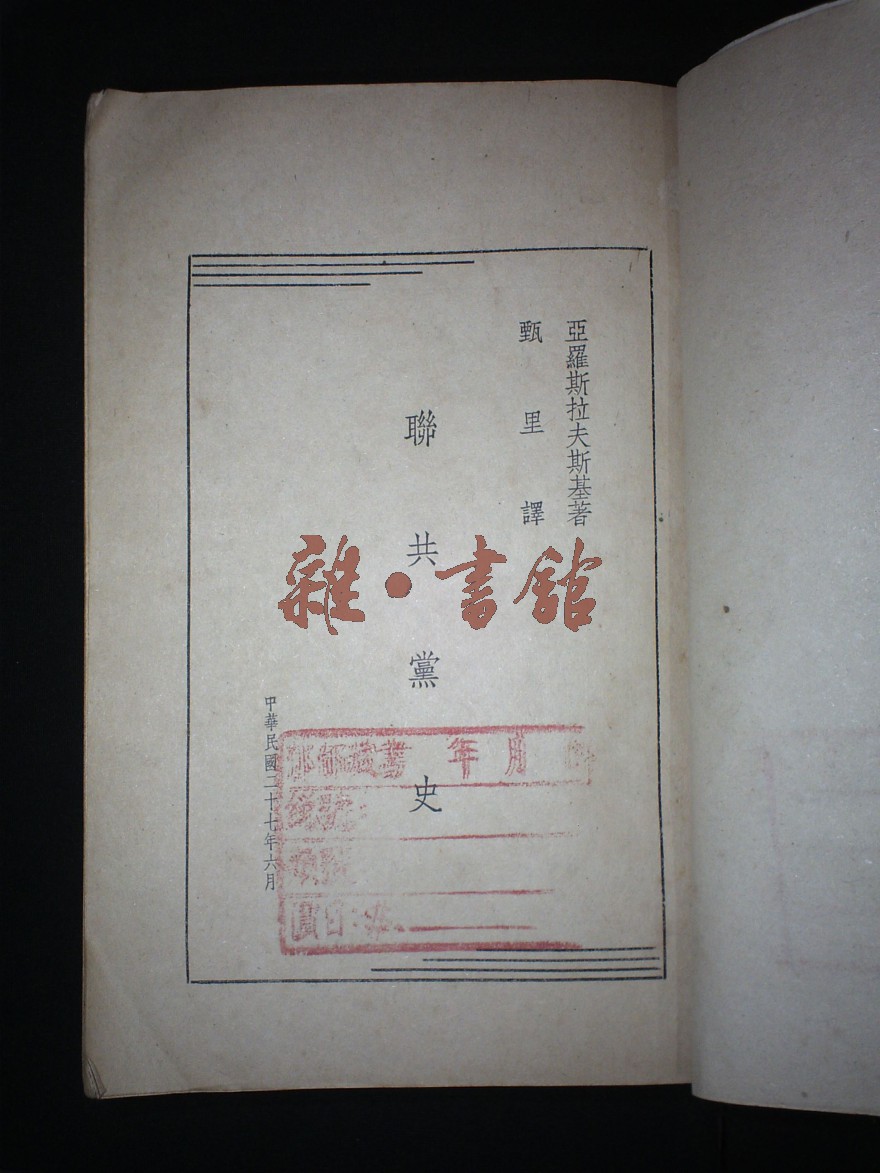 亞羅斯拉夫斯基著
甄里譯
聯共黨史
中華民國二十七年六月
雜·書館
年 月